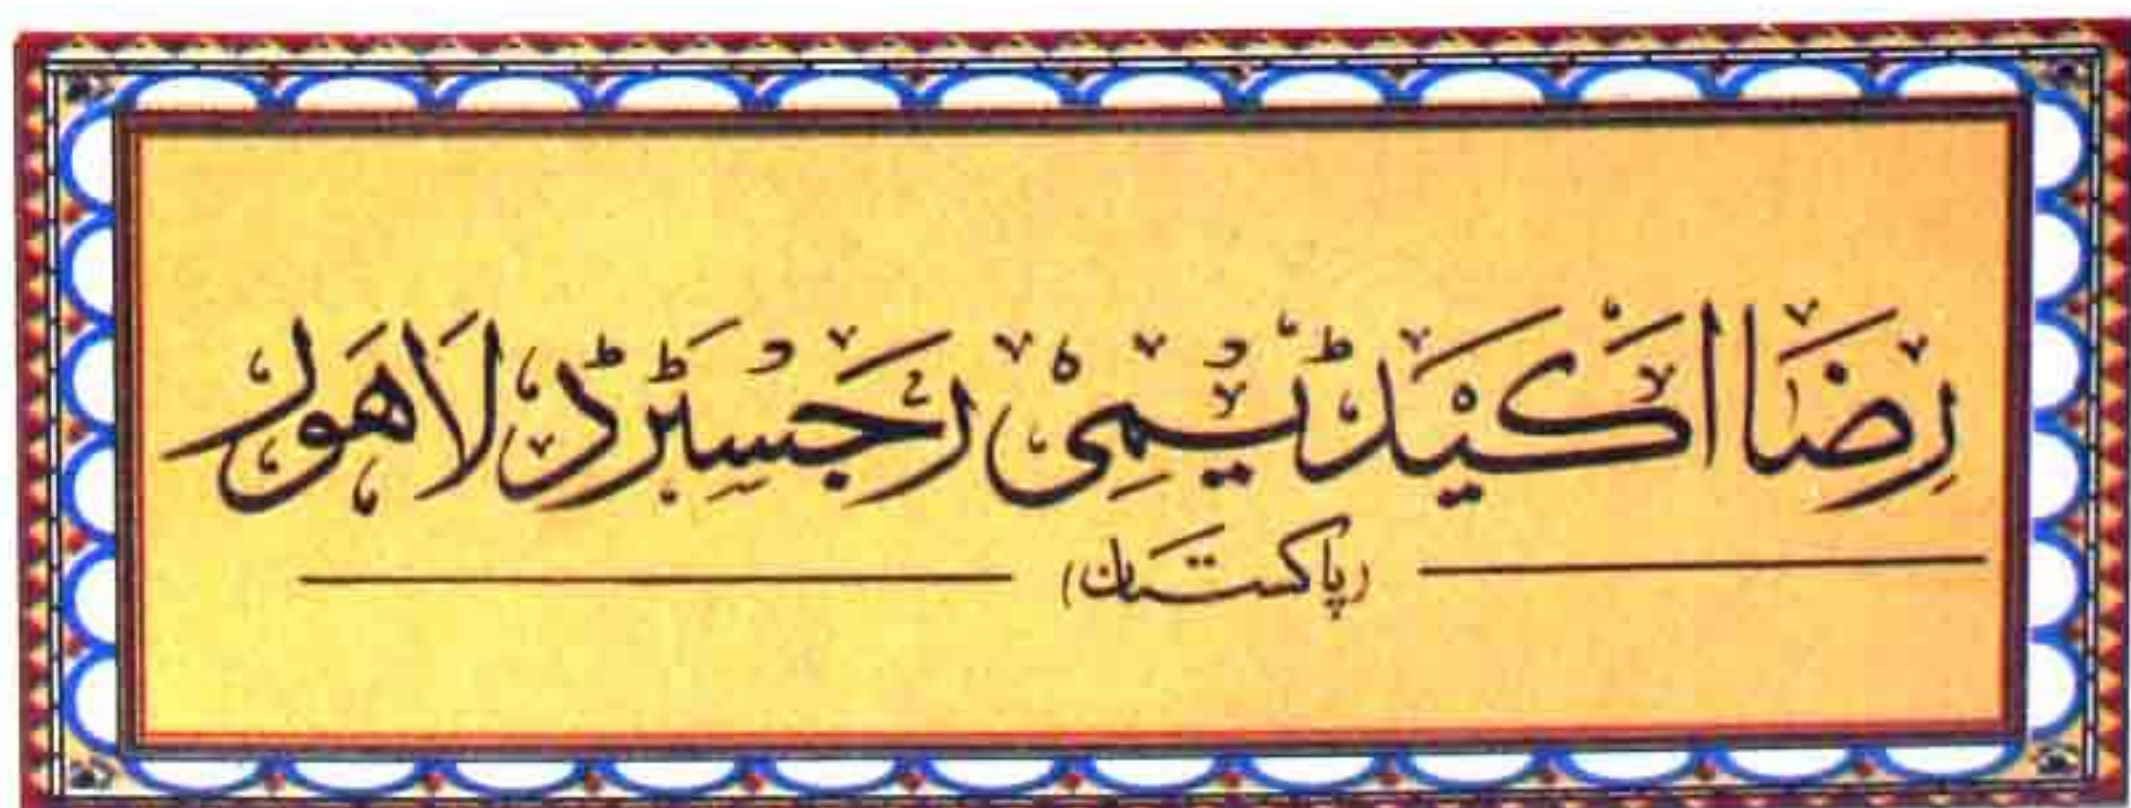 رضا اکیڈیمی رجسٹرڈ لاہور
(پاکستان)